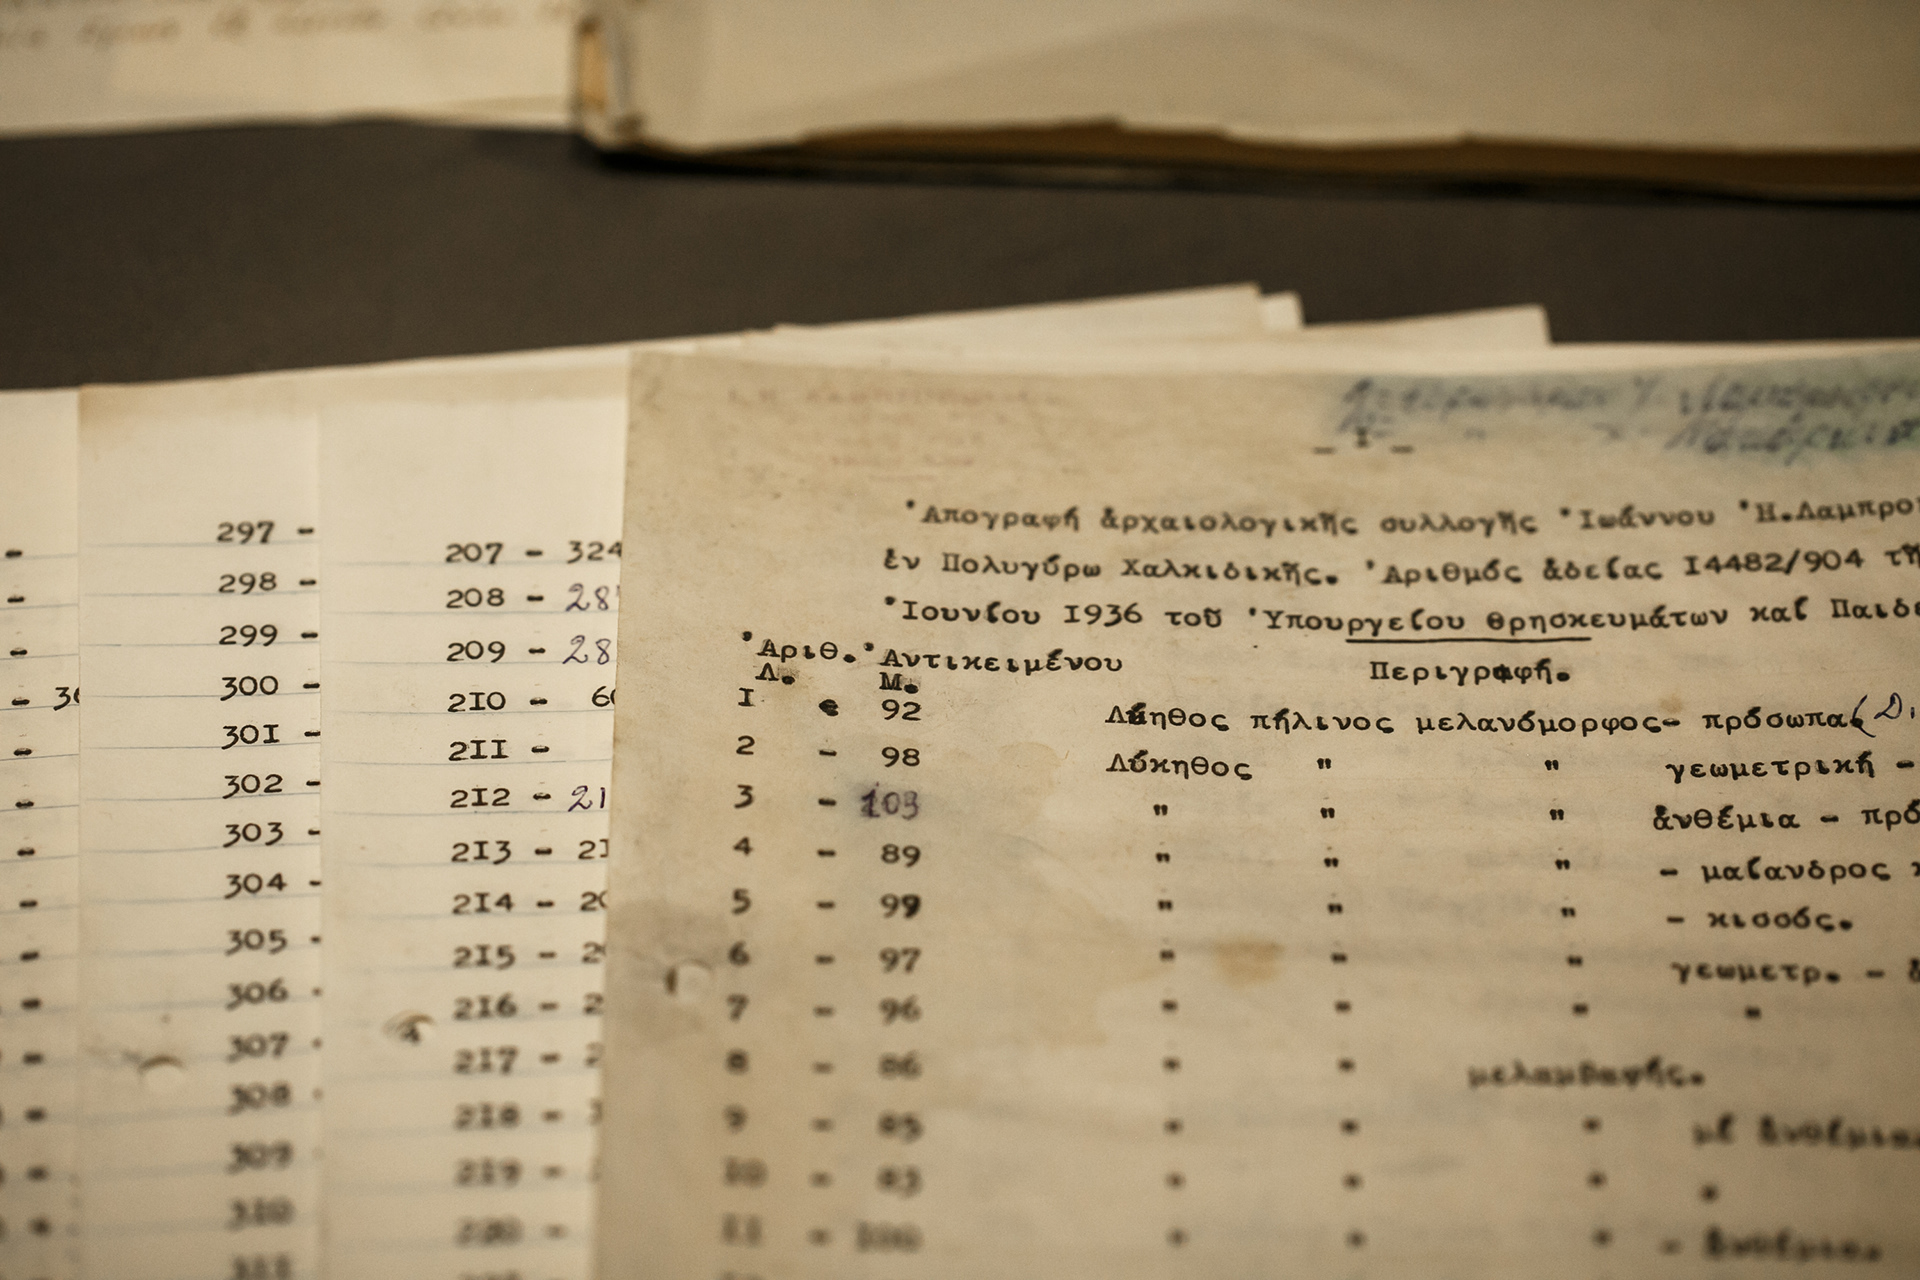 297 -
298 -
299 -
300 -
301 -
302 -
303 -
304 -
305 -
306 -
307 -
308
309
310
311
207 - 324
208 - 28
209 - 28
210 - 6
211 -
212 - 21
213 - 21
214 - 20
215 - 2
216 - 2
217 - 2
218 -
219 -
220 -
- I -
Ἀπογραφή ἀρχαιολογικῆς συλλογῆς Ἰωάννου Ἠ.Λαμπρο
ἐν Πολυγύρω Χαλκιδικῆς. Ἀριθμός ἀδείας I4482/904 τῆ
Ἰουνίου I936 τοῦ Ὑπουργείου θρησκευμάτων καί Παιδε
Ἀριθ. Ἀντικειμένου Περιγραφή.
Λ. Μ.
I 92 Λήκηθος πήλινος μελανόμορφος- πρόσωπα.
2 - 98 Λύκηθος " " γεωμετρική -
3 - 103 " " " ἀνθέμια - πρό
4 - 89 " " " - μαίανδρος
5 - 99 " " " - κισσός.
6 - 97 " " " γεωμετρ. -
7 - 96 " " " "
8 - 86 " " μελαμβαφής.
9 - 85 " " " μέ ἀνθέμια
10 - 83 " " " "
11 - 100 " " " - ἀνθέμια.